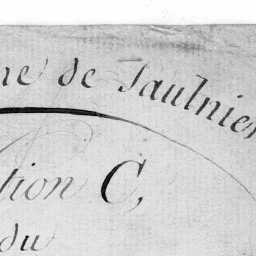 ne de Saulnier
tion C,
du